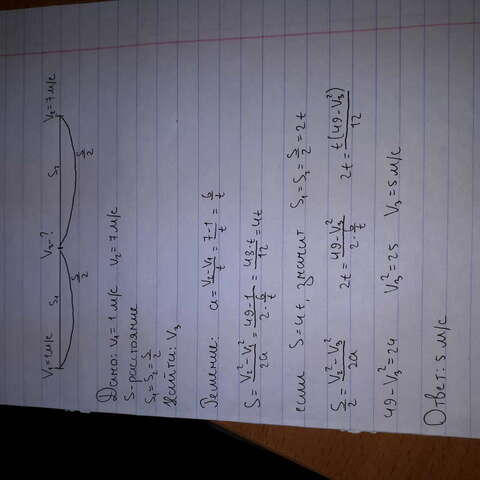 V₁=1м/с S₁ V₃-? S₂ V₂=7м/с
S/2 S/2
Дано: V₁=1м/с V₂=7м/с
S-расстояние
S₁=S₂=S/2
Найти: V₃
Решение: a=(V₂-V₁)/t=(7-1)/t=6/t
S=(V₂²-V₁²)/2a=(49-1)/(2·6/t)=48·t/12=4t
если S=4t, значит S₁=S₂=S/2=2t
S/2=(V₂²-V₃²)/2a 2t=(49-V₃²)/(2·6/t) 2t=t(49-V₃²)/12
49-V₃²=24 V₃²=25 V₃=5м/с
Ответ: 5м/с